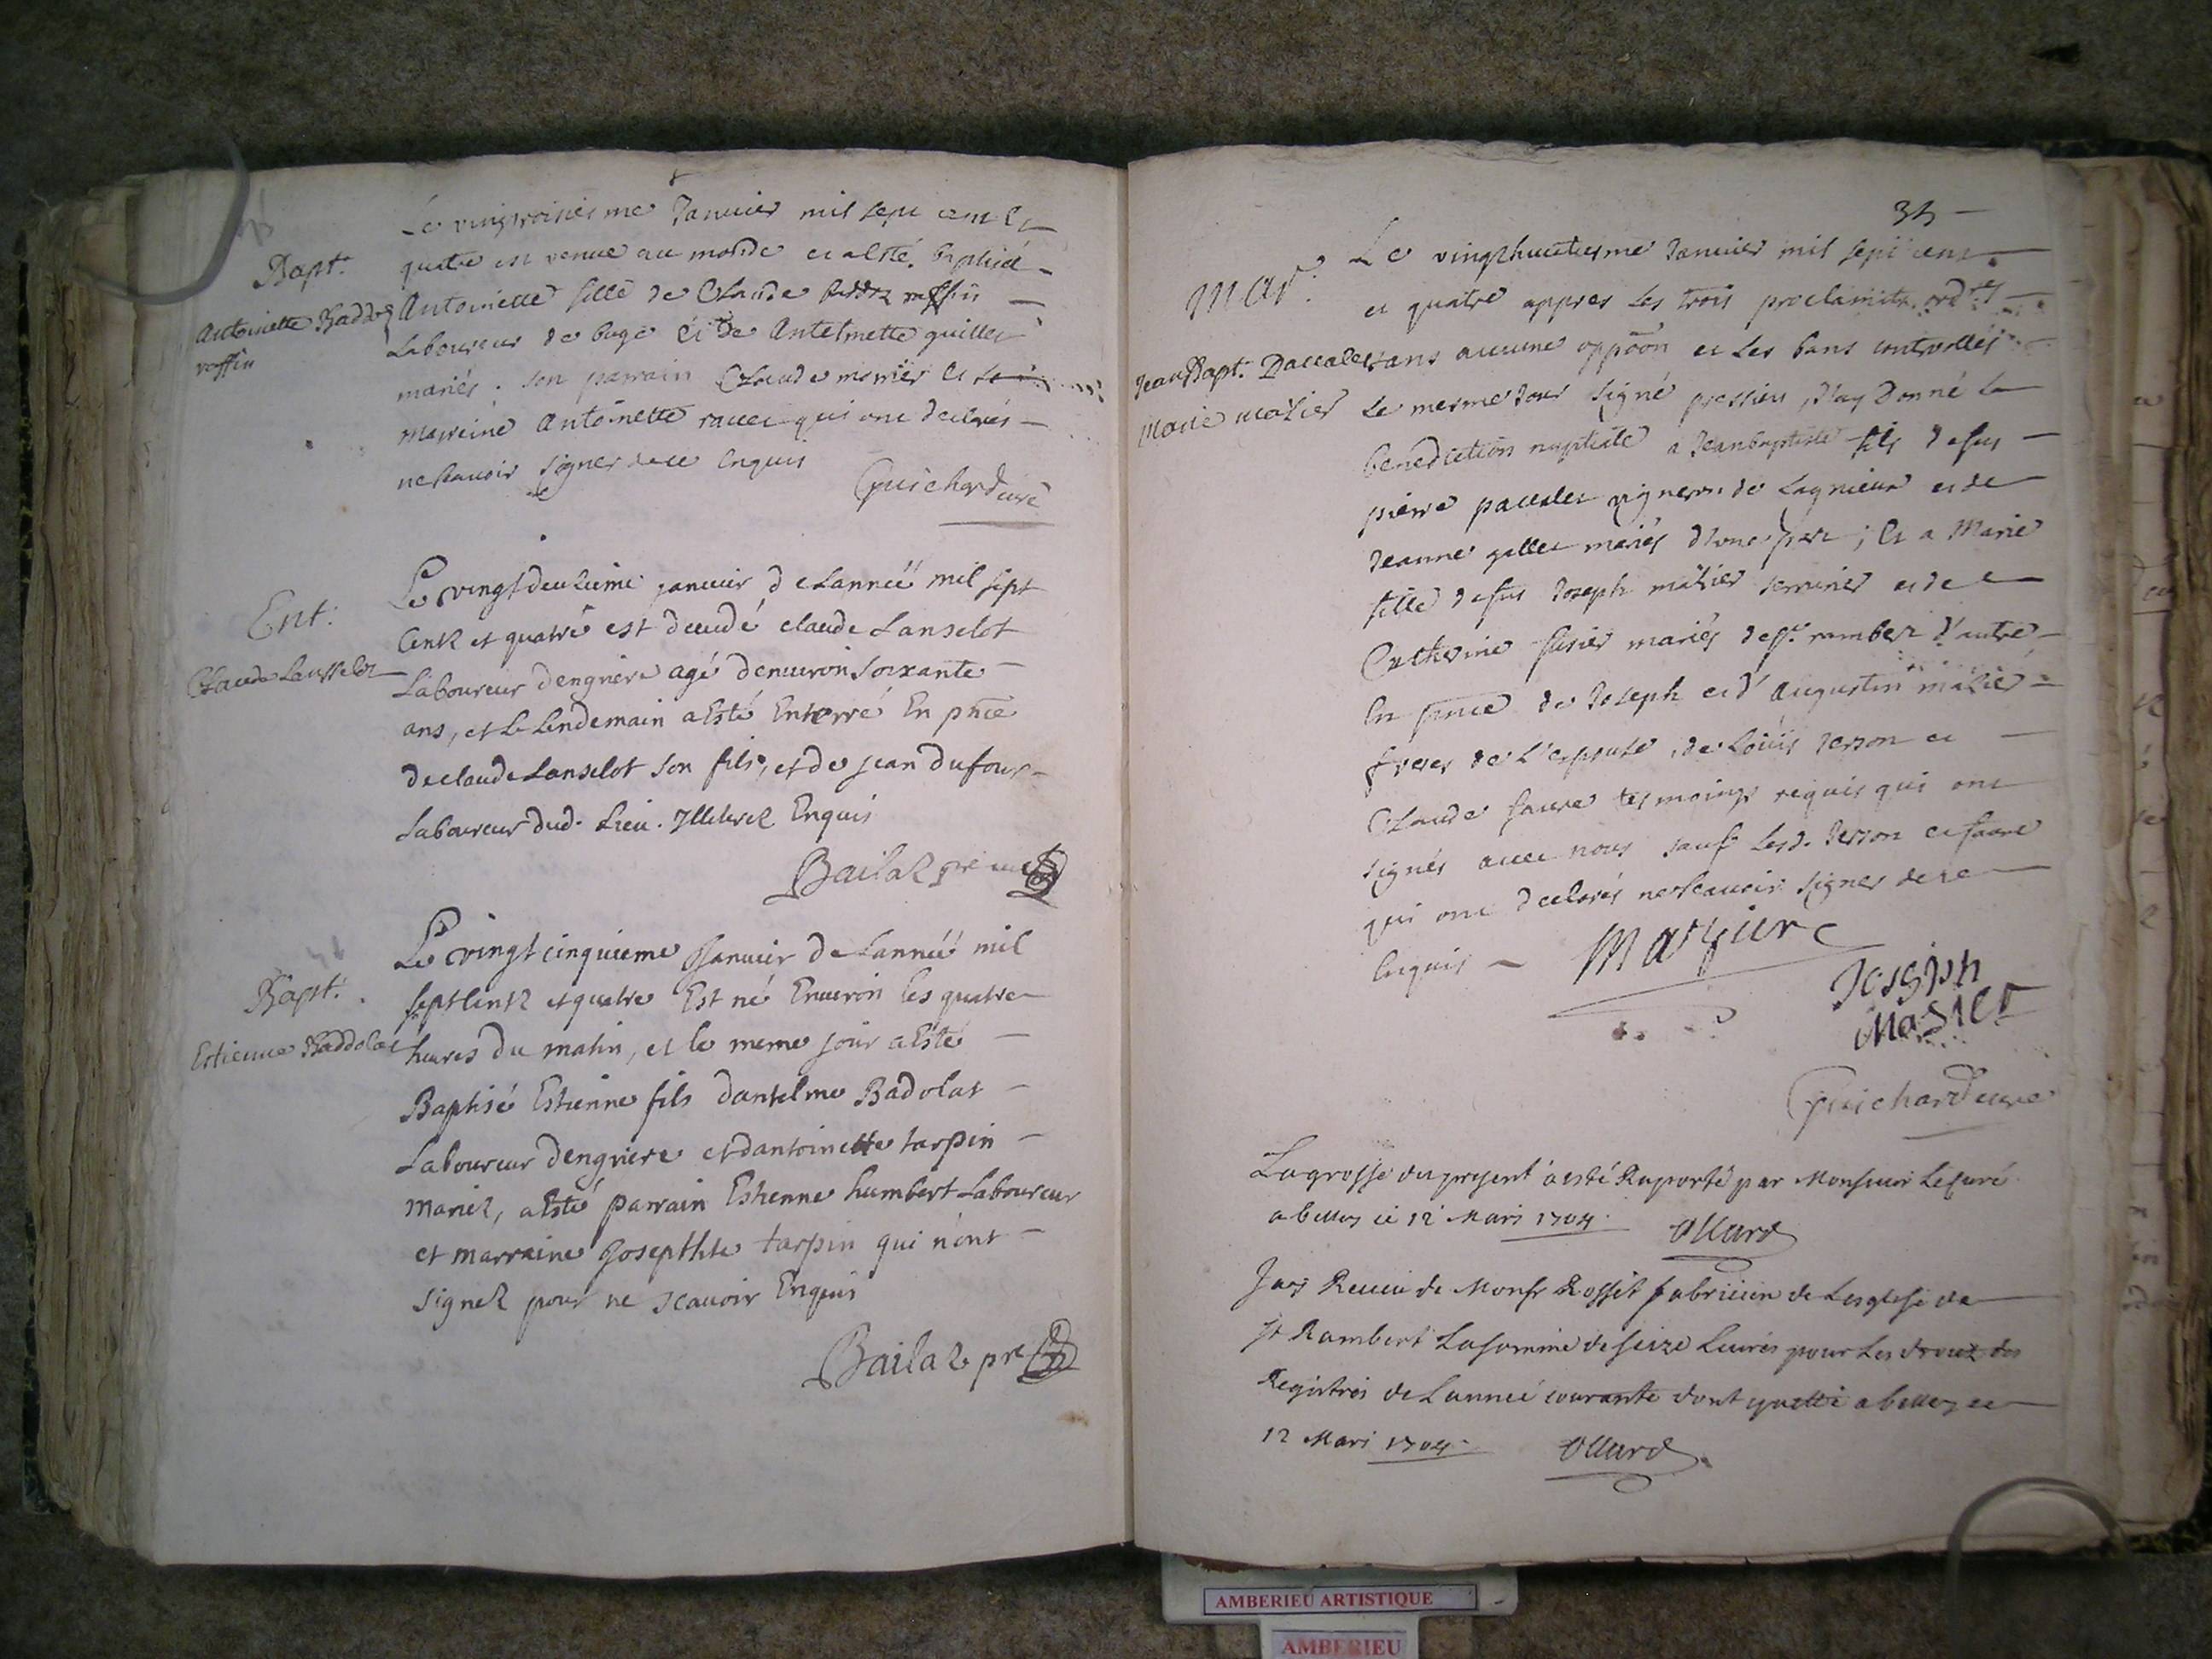 Bapt.
Antoinette Baddoz
roffin
Le vingtroisiesme Januier mil sept cent et
quatre est venue au monde et a esté baptisée
Antoinette fille de Claude roffin
Laboureur de buge et de Antelmette guillet
mariés. son parrain Claude monier et sa
marreine Antoinette rauet qui ont declarés
ne scauoir signer de ce enquis
Guichard curé
Ent.
Claude Lansselot
Le vingtdeuzieme januier de Lanneé mil sept
Centz et quatre est decedé claude Lanselot
Laboureur dengriere agé denuiron soixante
ans, et le Lendemain a Esté Enterré En pñce
de claude Lanselot son fils, et de jean dufour
Laboureur dud. Lieu. Illiterez Enquis
Bailaz pre
Bapt.
Estienne Baddolat
Le vingt cinquieme Januier de Lanneé mil
sept Centz et quatre Est né Enuiron les quatre
heures du matin, et le meme jour a Esté
Baptisé Estienne fils dantelme Badolat
Laboureur dengriere et dantoinette tarpin
mariez, a Esté parrain Estienne humbert Laboureur
et marraine Josephte tarpin qui n'ont
signez pour ne scauoir Enquis
Bailaz pre
35
Mar.
Jean Bapt. Paccalet
Marie mazier
Le vingthuictiesme Januier mil sept cent
et quatre appres les trois proclamäts. ordres
sans aucune oppöön et les bans controllés
le mesme Jour signé pressieu, J'ay donné la
benediction nuptiale a Jean baptiste fils de feu
pierre paccalet vigneron de Lagnieux et de
Jeanne gallet mariés d'vne part; et a Marie
fille de feu Joseph mazier serrurier et de
Catherine fusier mariés de St. rambert d'autre
En pñce de Joseph et d'Augustin mazier
freres de L'espouse, de Loüis Jerson et
Claude faure tesmoings requis qui ont
signés auec nous sauf Lesd. Jerson et faure
qui ont declarés ne scauoir signer de ce
Enquis
Mazier
Joseph
Masier
Guichard curé
La grosse du present a esté Raporté par Monsieur Le curé
a belley ce 12 Mars 1704
Ollard
Jay Receu de Monsr Rosset fabricien de Lesglise de
St Rambert La somme de seize Liures pour Les droitz des
Registres de Lanneé courante dont quitte a belley ce
12 Mars 1704
Ollard
AMBERIEU ARTISTIQUE
AMBERIEU